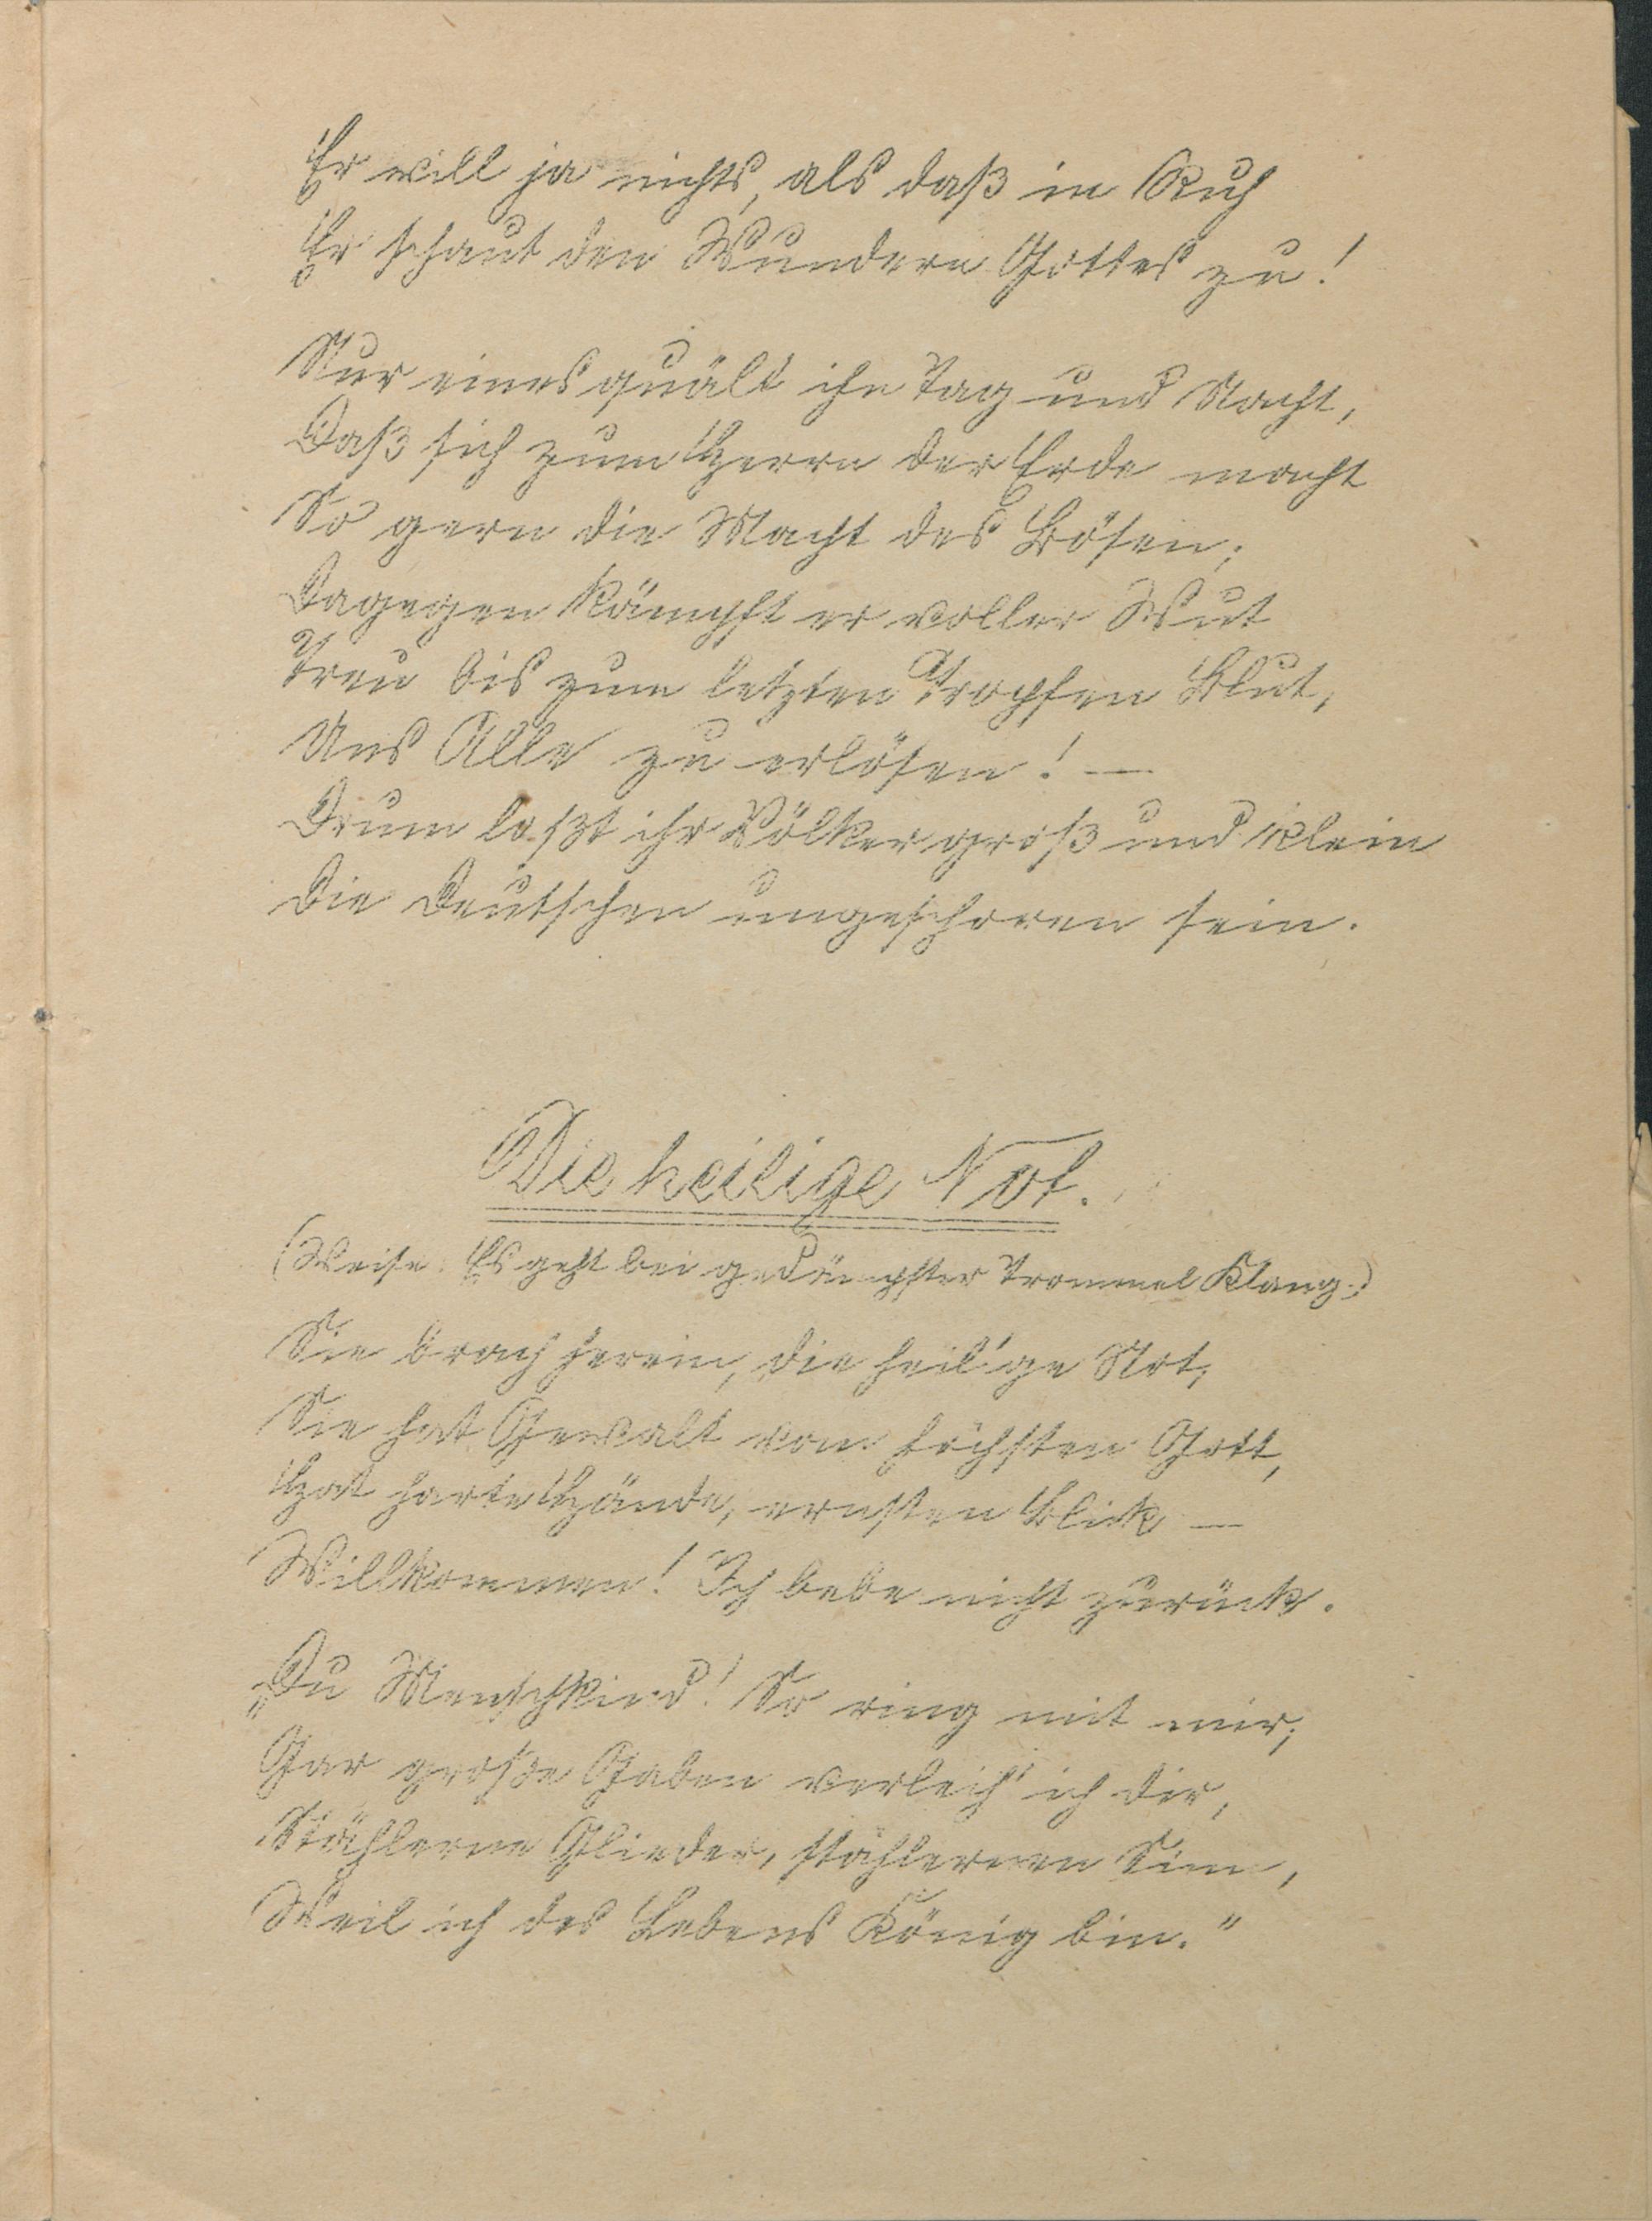 Er will ja nichts, als daß in Ruh
Er schaut den Wundern Gottes zu!
Nur eines quält ihn Tag und Nacht,
Daß sich zum Herrn der Erde macht
So gern die Macht des Bösen;
Dagegen kämpft er voller Wut
Treu bis zum letzten Tropfen Blut,
Uns Alle zu erlösen! —
Drum laßt ihr Völker groß und klein
Die Deutschen ungeschoren sein.
Die heilige Not.
(Weise: Es geht bei gedämpfter Trommel Klang.)
Sie brach herein, die heil'ge Not,
Sie hat Gewalt vom höchsten Gott,
Hat harte Hände, ernsten Blick —
Willkommen! Ich bebe nicht zurück.
„Du Menschkind! So ring mit mir;
Gar große Gaben verleih' ich dir,
Stählerne Glieder, stählernen Sinn,
Weil ich des Lebens König bin."